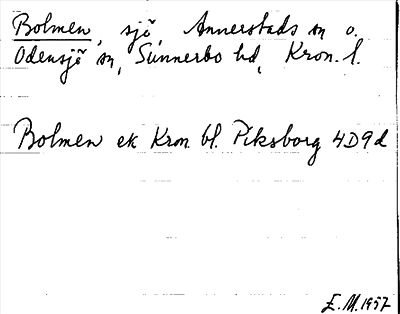 Bolmen, sjö, Annerstads sn o.
Odensjö sn, Sunnerbo hd, Kron. l.
Bolmen ek Kron. bl. Piksborg 4D9d
E.M. 1957